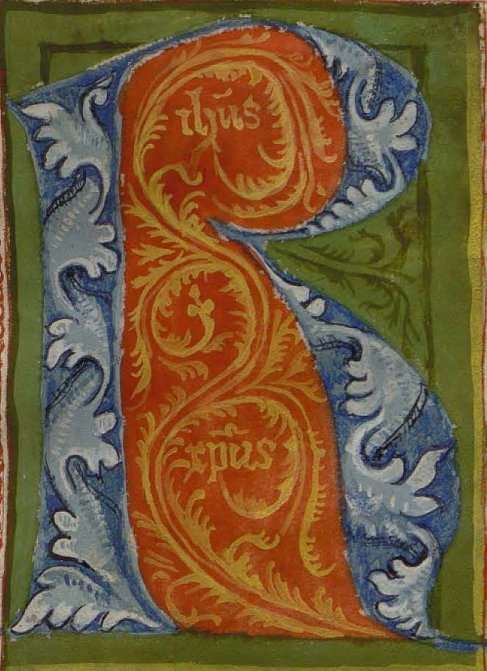 R
ihūs
xp̄us